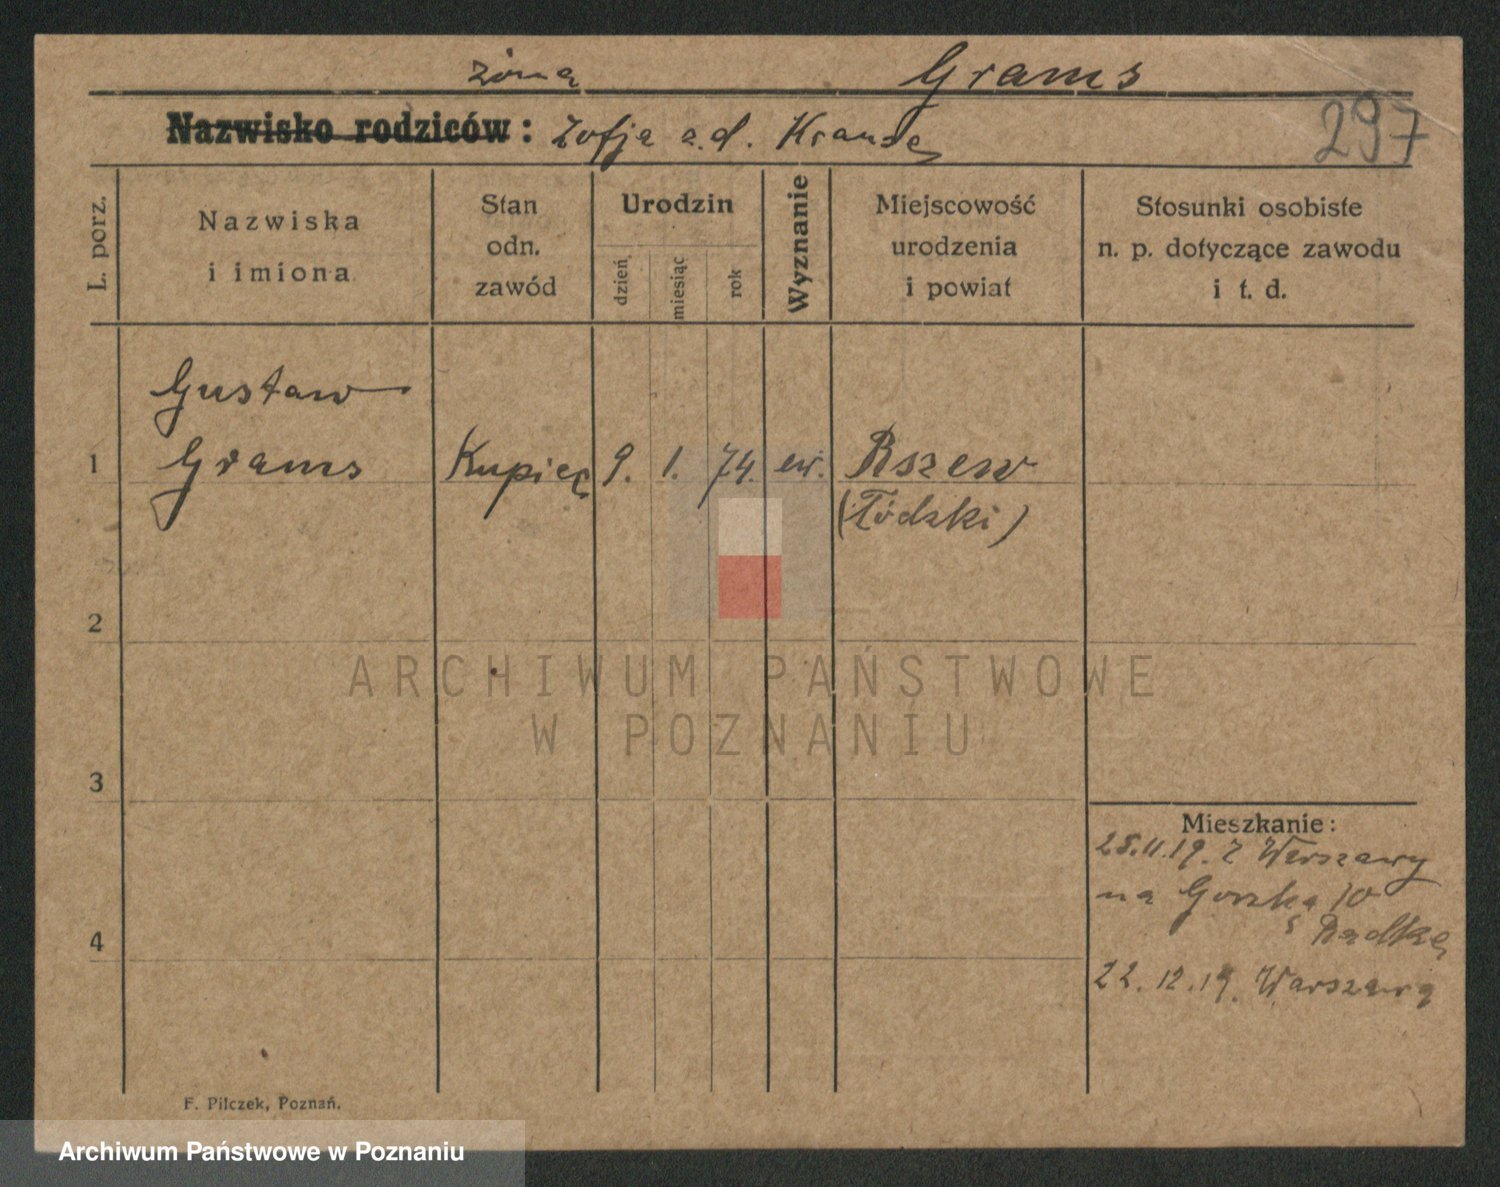 żona Grams
Nazwisko rodziców: Zofja a.d. Krause
297
L. porz.
Nazwiska
i imiona
Stan
odn.
zawód
Urodzin
dzień
miesiąc
rok
Wyznanie
Miejscowość
urodzenia
i powiat
Stosunki osobiste
n. p. dotyczące zawodu
i t. d.
Gustaw
1 Grams Kupiec 9. 1. 74. ew. Rszew
(Łódzki)
2
ARCHIWUM PAŃSTWOWE
W POZNANIU
3
Mieszkanie:
25.11.19. z Warszawy
na Gorską 10
Radtke
4
22.12.19. Warszawa
F. Pilczek, Poznań.
Archiwum Państwowe w Poznaniu